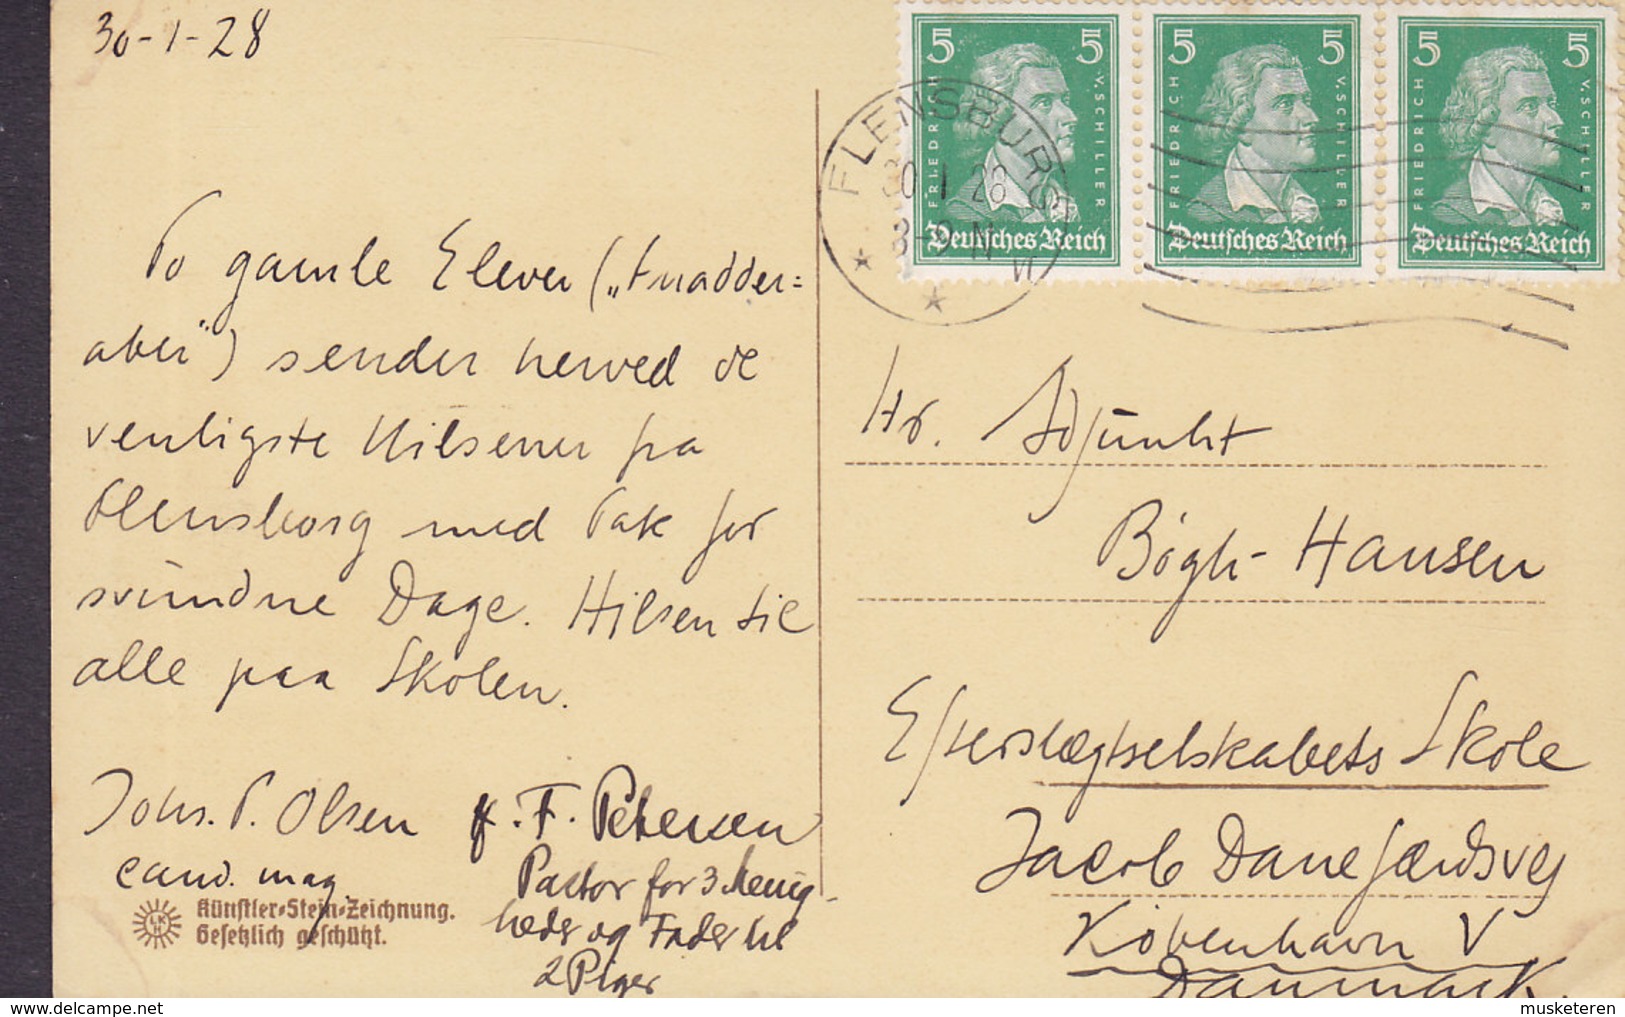 30-1-28
To gamle Elever („Knadder=
aber") sender herved de
venligste Hilsener fra
Flensborg med Tak for
svundne Dage. Hilsen til
alle paa Skolen.
Johs. P. Olsen
cand. mag.
F. Petersen
Pastor for 3 Menig-
heder og Fader til
2 Piger
Künstler=Stein=Zeichnung.
Gesetzlich geschützt.
LKH
5 5 5 5 5 5
FRIEDRICH V. SCHILLER
FRIEDRICH V. SCHILLER
FRIEDRICH V. SCHILLER
Deutsches Reich Deutsches Reich Deutsches Reich
FLENSBURG
30.1.28
8-9 N
Hr. Adjunkt
Bøgh-Hansen
Efterslægtselskabets Skole
Jacob Danefærdsvej
København V
Danmark.
musketeren